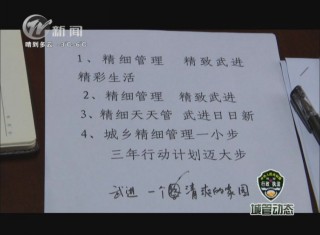 新闻
1、精细管理 精致武进
精彩生活
2、精细管理 精致武进
3、精细天天管 武进日日新
4、城乡精细管理一小步
三年行动计划迈大步
武进 一个清爽的家园
城管动态